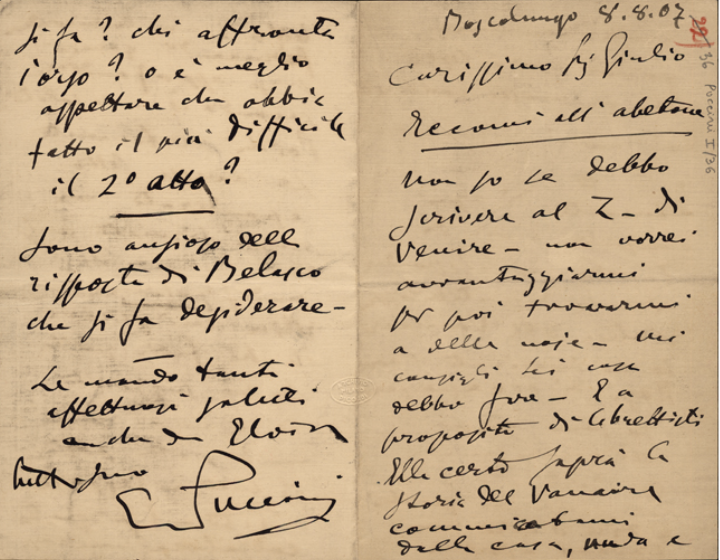 Boscolungo 8.8.07
Carissimo Sig Giulio
Eccomi all'abetone
non so se debbo
scrivere al Z – di
venire – non vorrei
avvantaggiarmi
per poi trovarmi
a delle noje – mi
consigli Lei cosa
debbo fare – E a
proposito di librettisti
Elle certo saprà la
storia del Vaucaire
communicatami
dalla casa, nuda e
36 Puccini I/36
si fa? chi affronta
l'orso? o è meglio
aspettare che abbia
fatto il più difficile
il 2º atto?
Sono ansioso della
risposta di Belasco
che si fa desiderare –
Le mando tanti
affettuosi saluti
anche da Elvira
tutto suo
G Puccini